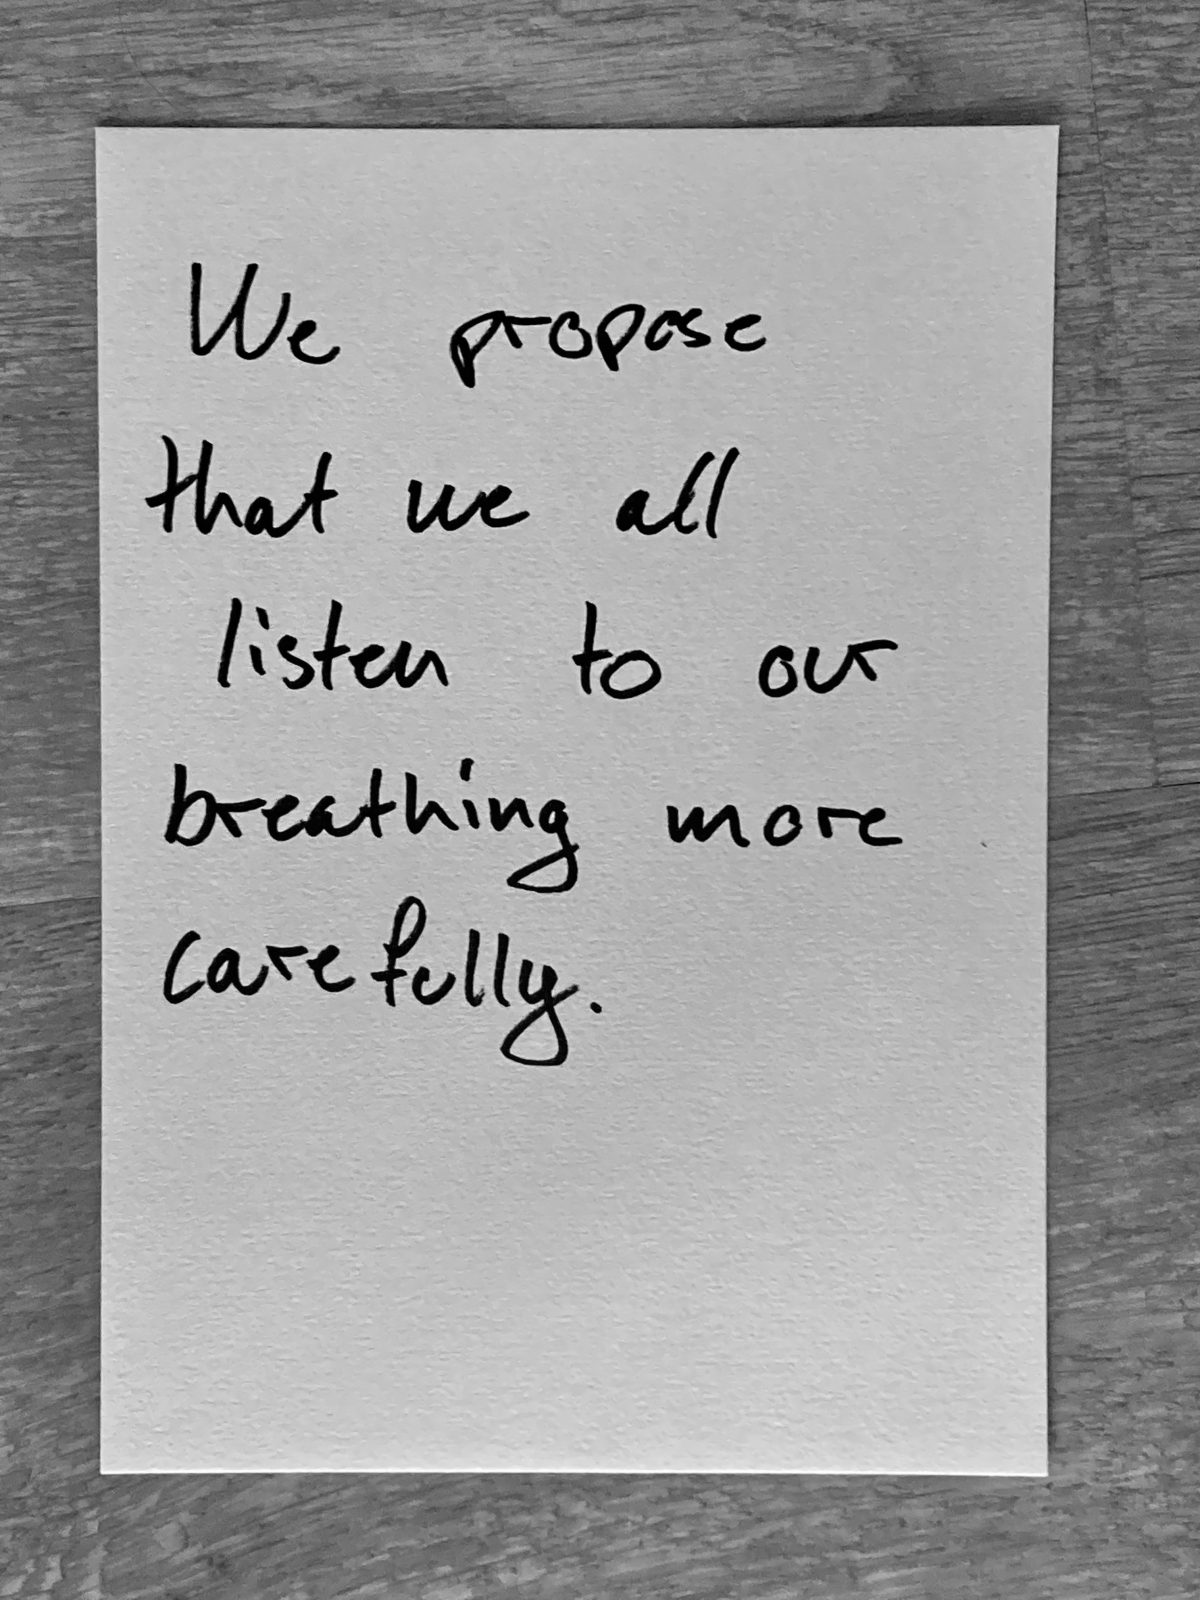 We propose
that we all
listen to our
breathing more
carefully.